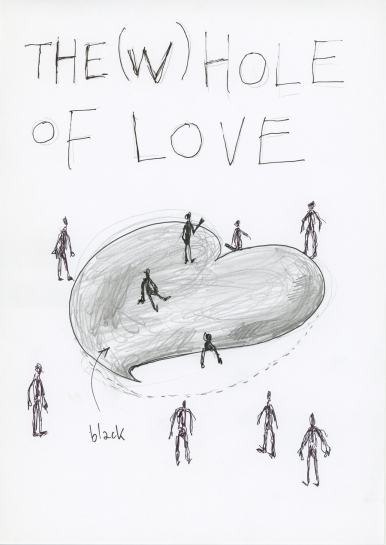 THE (W)HOLE
OF LOVE
black